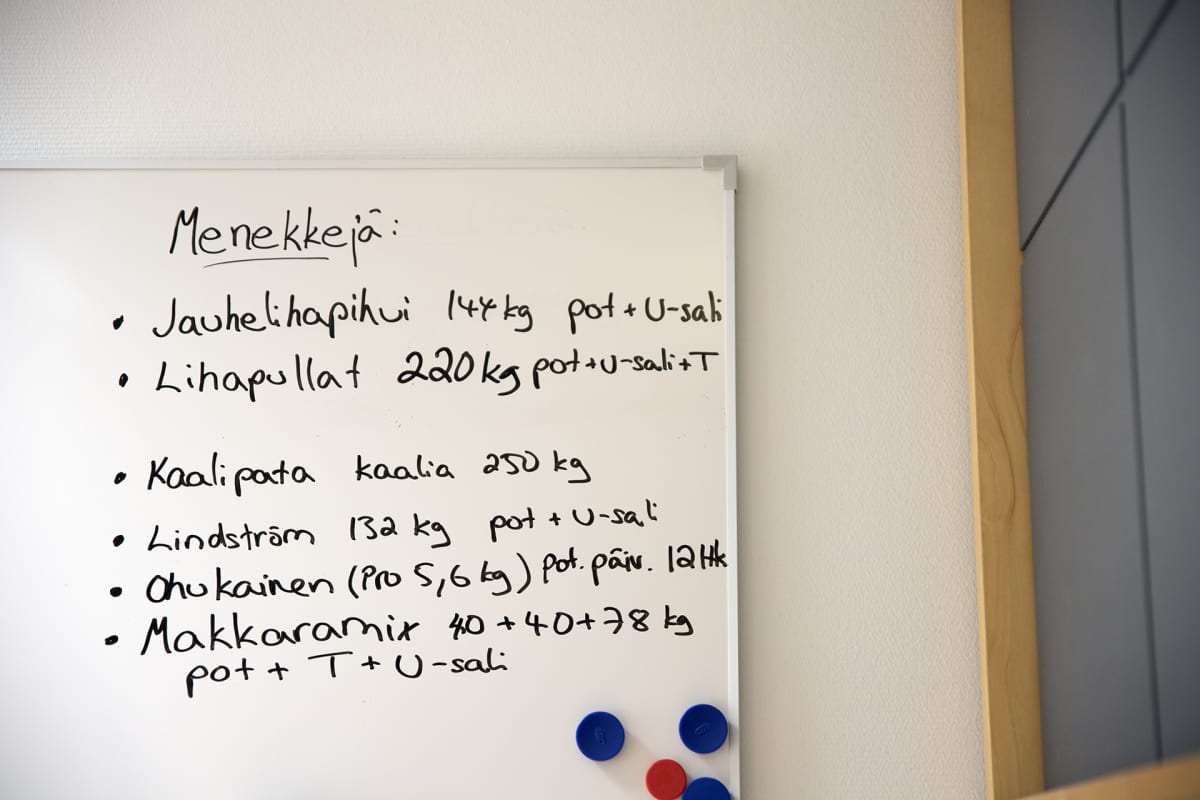 Menekkejä:
• Jauhelihapihvi 144 kg pot + U-sali
• Lihapullat 220 kg pot + U-sali + T
• Kaalipata kaalia 250 kg
• Lindström 132 kg pot + U-sali
• Ohukainen (Pro 5,6 kg) pot. päiv. 12 Hk
• Makkaramix 40 + 40 + 78 kg
pot + T + U-sali